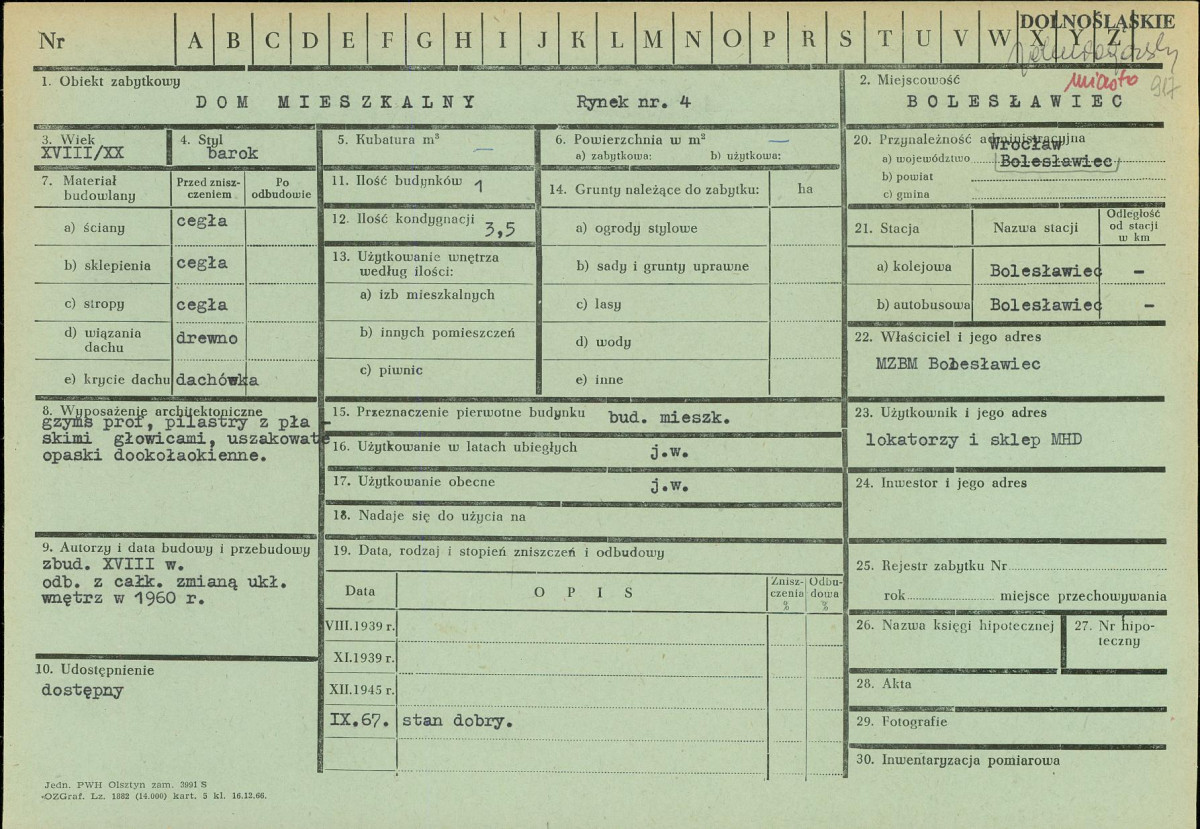 DOLNOŚLĄSKIE
Nr A B C D E F G H I J K L M N O P R S T U V W X Y Z
miasto 917
1. Obiekt zabytkowy
DOM MIESZKALNY Rynek nr. 4
2. Miejscowość
BOLESŁAWIEC
3. Wiek
XVIII/XX
4. Styl
barok
5. Kubatura m³ —
6. Powierzchnia w m² —
a) zabytkowa: b) użytkowa:
20. Przynależność administracyjna
Wrocław
a) województwo Bolesławiec
b) powiat
c) gmina
7. Materiał budowlany
Przed zniszczeniem
Po odbudowie
a) ściany cegła
b) sklepienia cegła
c) stropy cegła
d) wiązania dachu drewno
e) krycie dachu dachówka
11. Ilość budynków 1
12. Ilość kondygnacji 3,5
13. Użytkowanie wnętrza
według ilości:
a) izb mieszkalnych
b) innych pomieszczeń
c) piwnic
14. Grunty należące do zabytku: ha
a) ogrody stylowe
b) sady i grunty uprawne
c) lasy
d) wody
e) inne
21. Stacja Nazwa stacji Odległość od stacji w km
a) kolejowa Bolesławiec -
b) autobusowa Bolesławiec -
22. Właściciel i jego adres
MZBM Bolesławiec
8. Wyposażenie architektoniczne
gzyms prof, pilastry z pła -
skimi głowicami, uszakowate
opaski dookołaokienne.
15. Przeznaczenie pierwotne budynku bud. mieszk.
16. Użytkowanie w latach ubiegłych j.w.
17. Użytkowanie obecne j.w.
18. Nadaje się do użycia na
23. Użytkownik i jego adres
lokatorzy i sklep MHD
24. Inwestor i jego adres
9. Autorzy i data budowy i przebudowy
zbud. XVIII w.
odb. z całk. zmianą ukł.
wnętrz w 1960 r.
19. Data, rodzaj i stopień zniszczeń i odbudowy
Data OPIS Zniszczenia % Odbudowa %
VIII.1939 r.
XI.1939 r.
XII.1945 r.
IX.67. stan dobry.
25. Rejestr zabytku Nr
rok miejsce przechowywania
26. Nazwa księgi hipotecznej
27. Nr hipoteczny
10. Udostępnienie
dostępny
28. Akta
29. Fotografie
30. Inwentaryzacja pomiarowa
Jedn. PWH Olsztyn zam. 3991 S
OZGraf. Lz. 1882 (14.000) kart. 5 kl. 16.12.66.